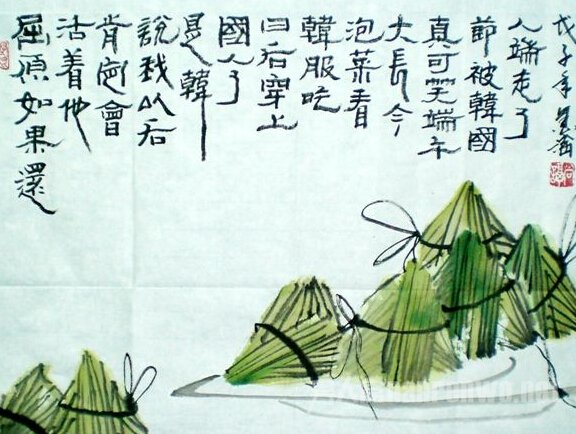 屈原如果還
活着他
肯定會
說我以后
是韓
國人了
日后穿上
韓服吃
泡菜看
大長今
真可笑端午
節被韓國
人端走了
戊子年